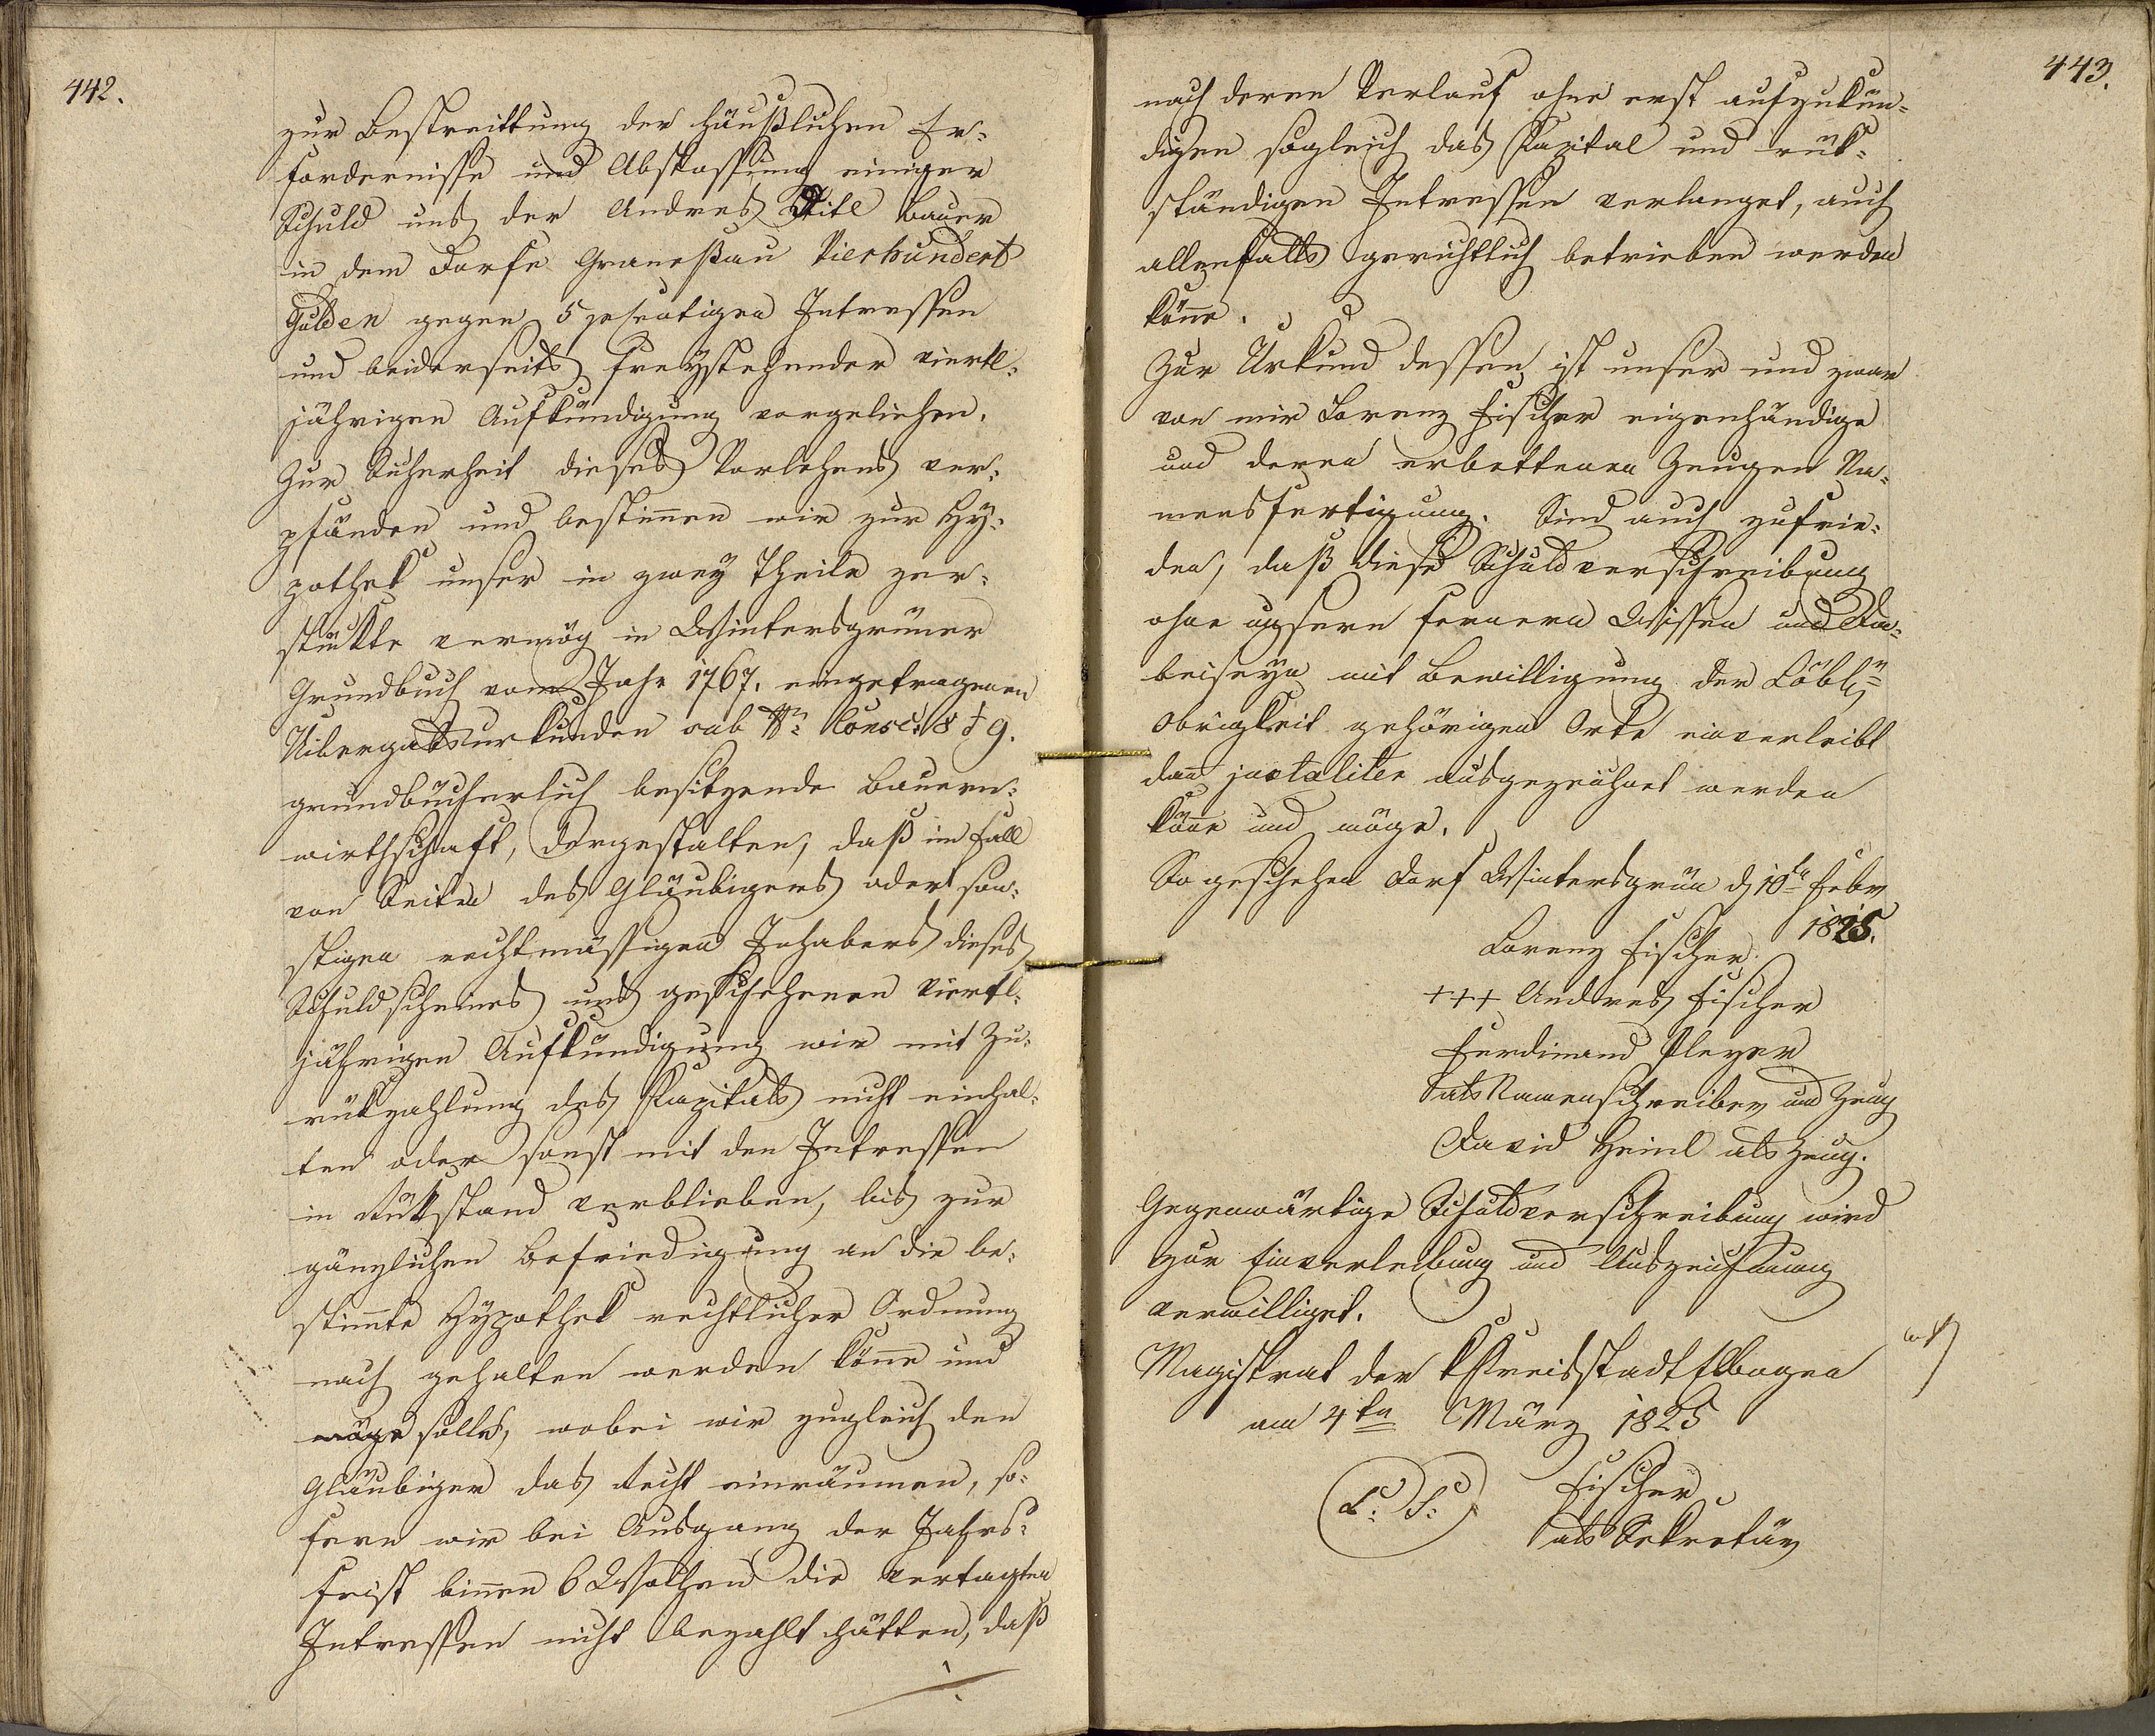 442.
zur Bestreittung der häußlichen Er-
fordernisse und Abstossung einiger
Schuld uns der Andres Ditl Bauer
in dem Dorfe Graneßau Vierhundert
Gulden gegen 5 percentigen Intressen
und beiderseits freÿstehender viertl-
jährigen Aufkündigung vorgeliehen.
Zur Sicherheit dieses Darlehens ver-
pfänden und bestimen wir zur Hÿ-
pothek unser in zweÿ Theile zer-
stückte vermög in Wintersgrüner
Grundbuch vom Jahr 1767. eingetragenen
Uibergabsurkunden sub Nr. Consc: 8 & 9.
grundbücherlich besitzende Bauern-
wirthschaft, dergestalten, daß im Fall
von Seiten des Gläubigers oder son-
stigen rechtmässigen Inhabers dieses
Schuldscheines und geschehenen viertl-
jährigen Aufkündigung wir mit Zu-
rükzahlung des Kapitals nicht einhal-
ten oder sonst mit den Intressen
in Rükstand verblieben, bis zur
gänzlichen Befriedigung an die be-
stimte Hÿpothek rechtlicher Ordnung
nach gehalten werden köne und
möge solle, wobei wir zugleich den
Gläubiger das Recht einräumen, so-
fern wir bei Ausgang der Jahrs-
frist binen 6 Wochen die vertagten
Intressen nicht bezahlt hätten, daß
443.
nach deren Verlauf ohne erst aufzukün-
digen sogleich das Kapital und rük-
ständigen Intressen verlanget, auch
allenfalls gerichtlich betrieben werden
köne.
Zur Urkund dessen ist unser und zwar
von mir Lorenz Fischer eigenhändige
und deren erbettenen Zeugen Na-
mensfertigung. Sind auch zufrie-
den, daß diese Schuldverschreibung
ohne unsern fernern Wissen und Da-
beiseÿn mit Bewilligung der Löbl:
Obrigkeit gehörigen Orte einverleibt
dan juxtaliter ausgezeichnet werden
köne und möge.
So geschehen Dorf Wintersgrün d 10te Febr
1825.
Lorenz Fischer.
+++ Andres Fischer
Ferdinand Pleyer
als Namenschreiber und Zeug
David Heinl als Zeug.
Gegenwärtige Schuldverschreibung wird
zur Einverleibung und Auszeichnung
verwilliget.
Magistrat der Kreisstadt Elbogen
am 4ten März 1825
L: S: Fischer
als Sekretär